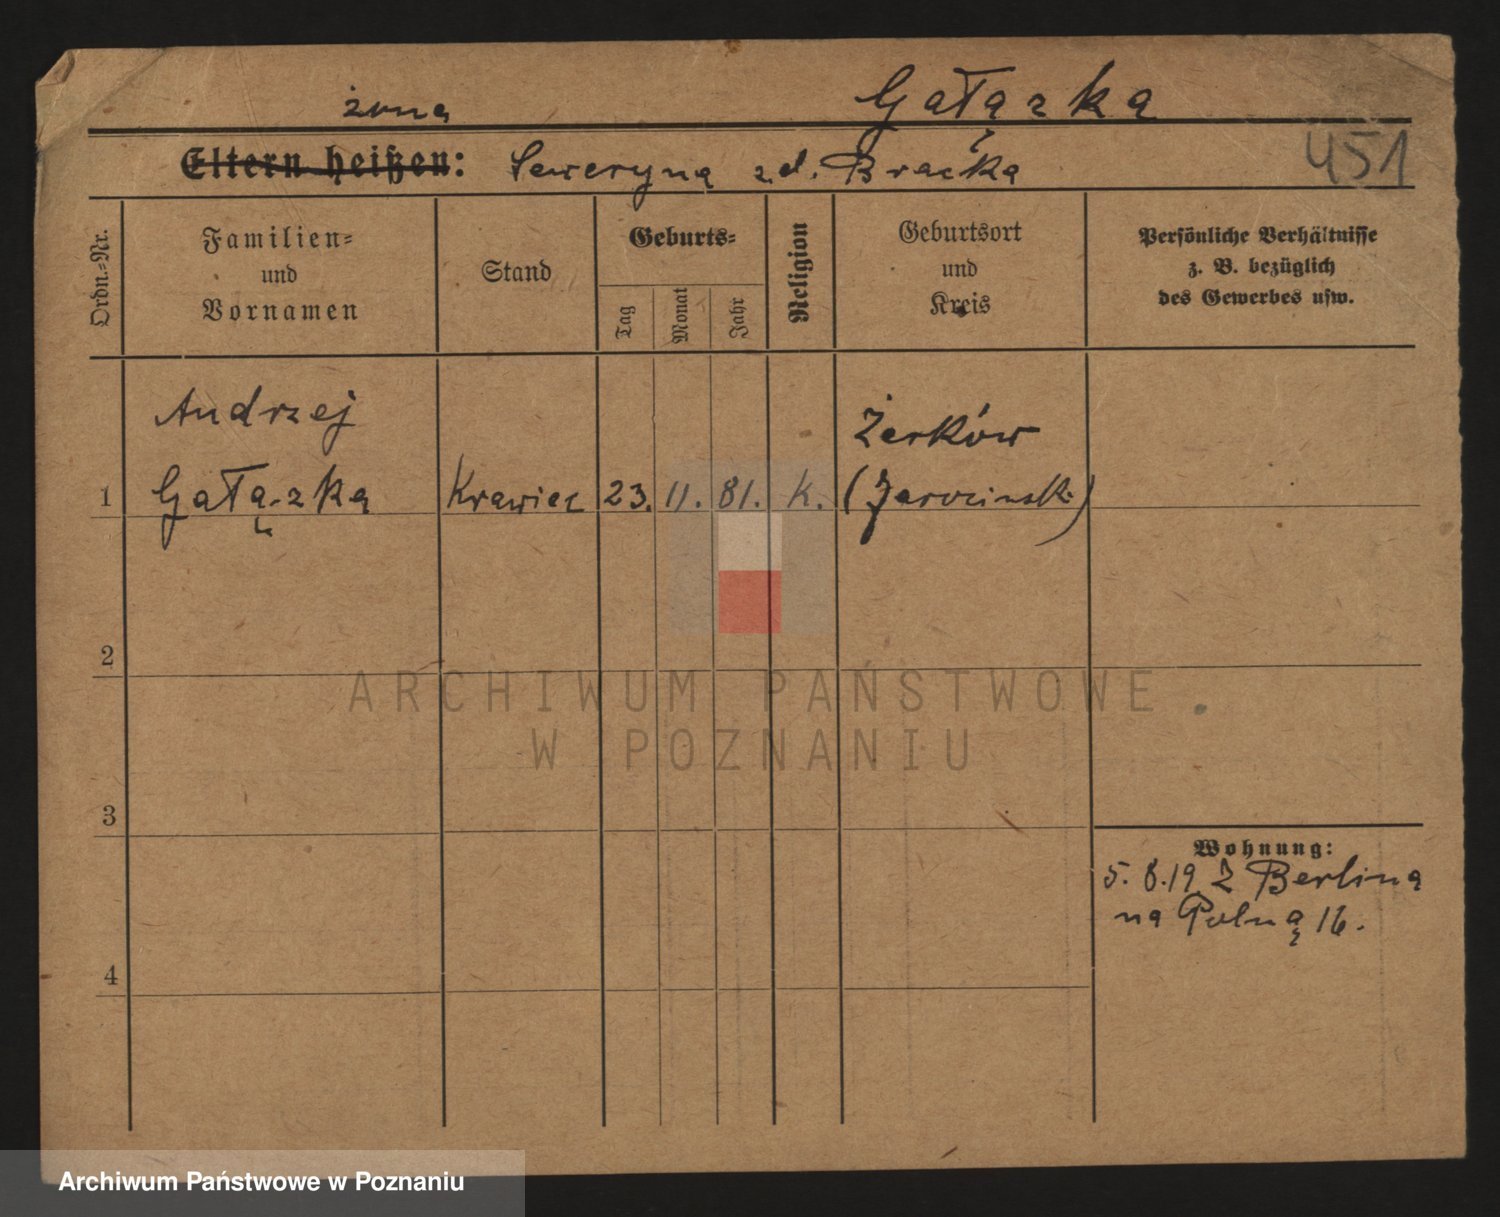 żona Gałązka
Eltern heißen: Seweryna zd. Bracka
451
Ordn.-Nr.
Familien-
und
Vornamen
Stand
Geburts-
Tag
Monat
Jahr
Religion
Geburtsort
und
Kreis
Persönliche Verhältnisse
z. B. bezüglich
des Gewerbes usw.
Andrzej
1 Gałązka Krawiec 23. 11. 81. k.
Żerków
(Jarocinsk.)
2
ARCHIWUM PAŃSTWOWE
W POZNANIU
3
Wohnung:
5.8.19 Z Berlina
na Polną 16.
4
Archiwum Państwowe w Poznaniu